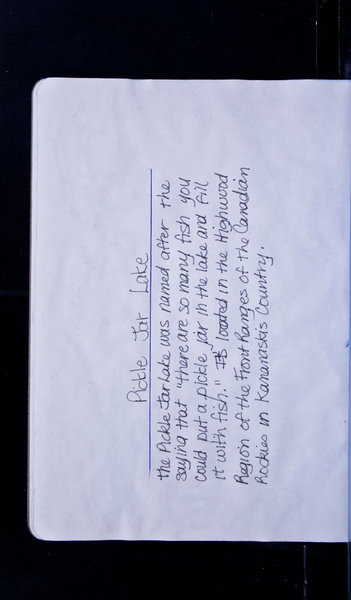 Pickle Jar Lake
the Pickle Jar Lake was named after the
saying that "there are so many fish you
could put a pickle jar in the lake and fill
it with fish." It's located in the Highwood
Region of the Front Ranges of the Canadian
Rockies in Kananaskis Country.